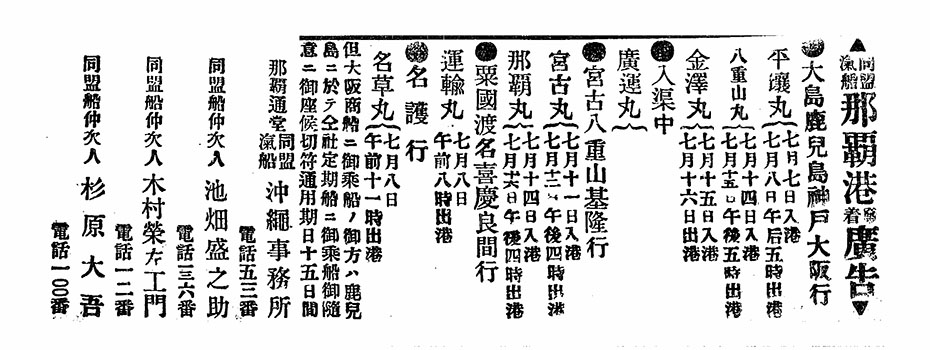 ▲同盟滊船那覇港發着廣告▼
●大島鹿兒島神戸大阪行
平壤丸 七月七日入港
七月八日午后五時出港
八重山丸 七月十四日入港
七月十五日午后五時出港
金澤丸 七月十五日入港
七月十六日出港
●入渠中
廣運丸
●宮古八重山基隆行
宮古丸 七月十一日入港
七月十二日午後四時出港
那覇丸 七月十四日入港
七月十六日午後四時出港
●粟國渡名喜慶良間行
運輸丸 七月八日
午前八時出港
●名護行
名草丸 七月八日
午前十一時出港
但大阪商船ニ御乘船ノ御方ハ鹿兒
島ニ於テ仝社定期船ニ御乘船御隨
意ニ御座候切符通用期日十五日間
那覇通堂 同盟滊船 沖繩事務所
電話五三番
同盟船仲次人 池畑盛之助
電話一三六番
同盟船仲次人 木村榮左工門
電話一二番
同盟船仲次人 杉原大吾
電話一〇〇番